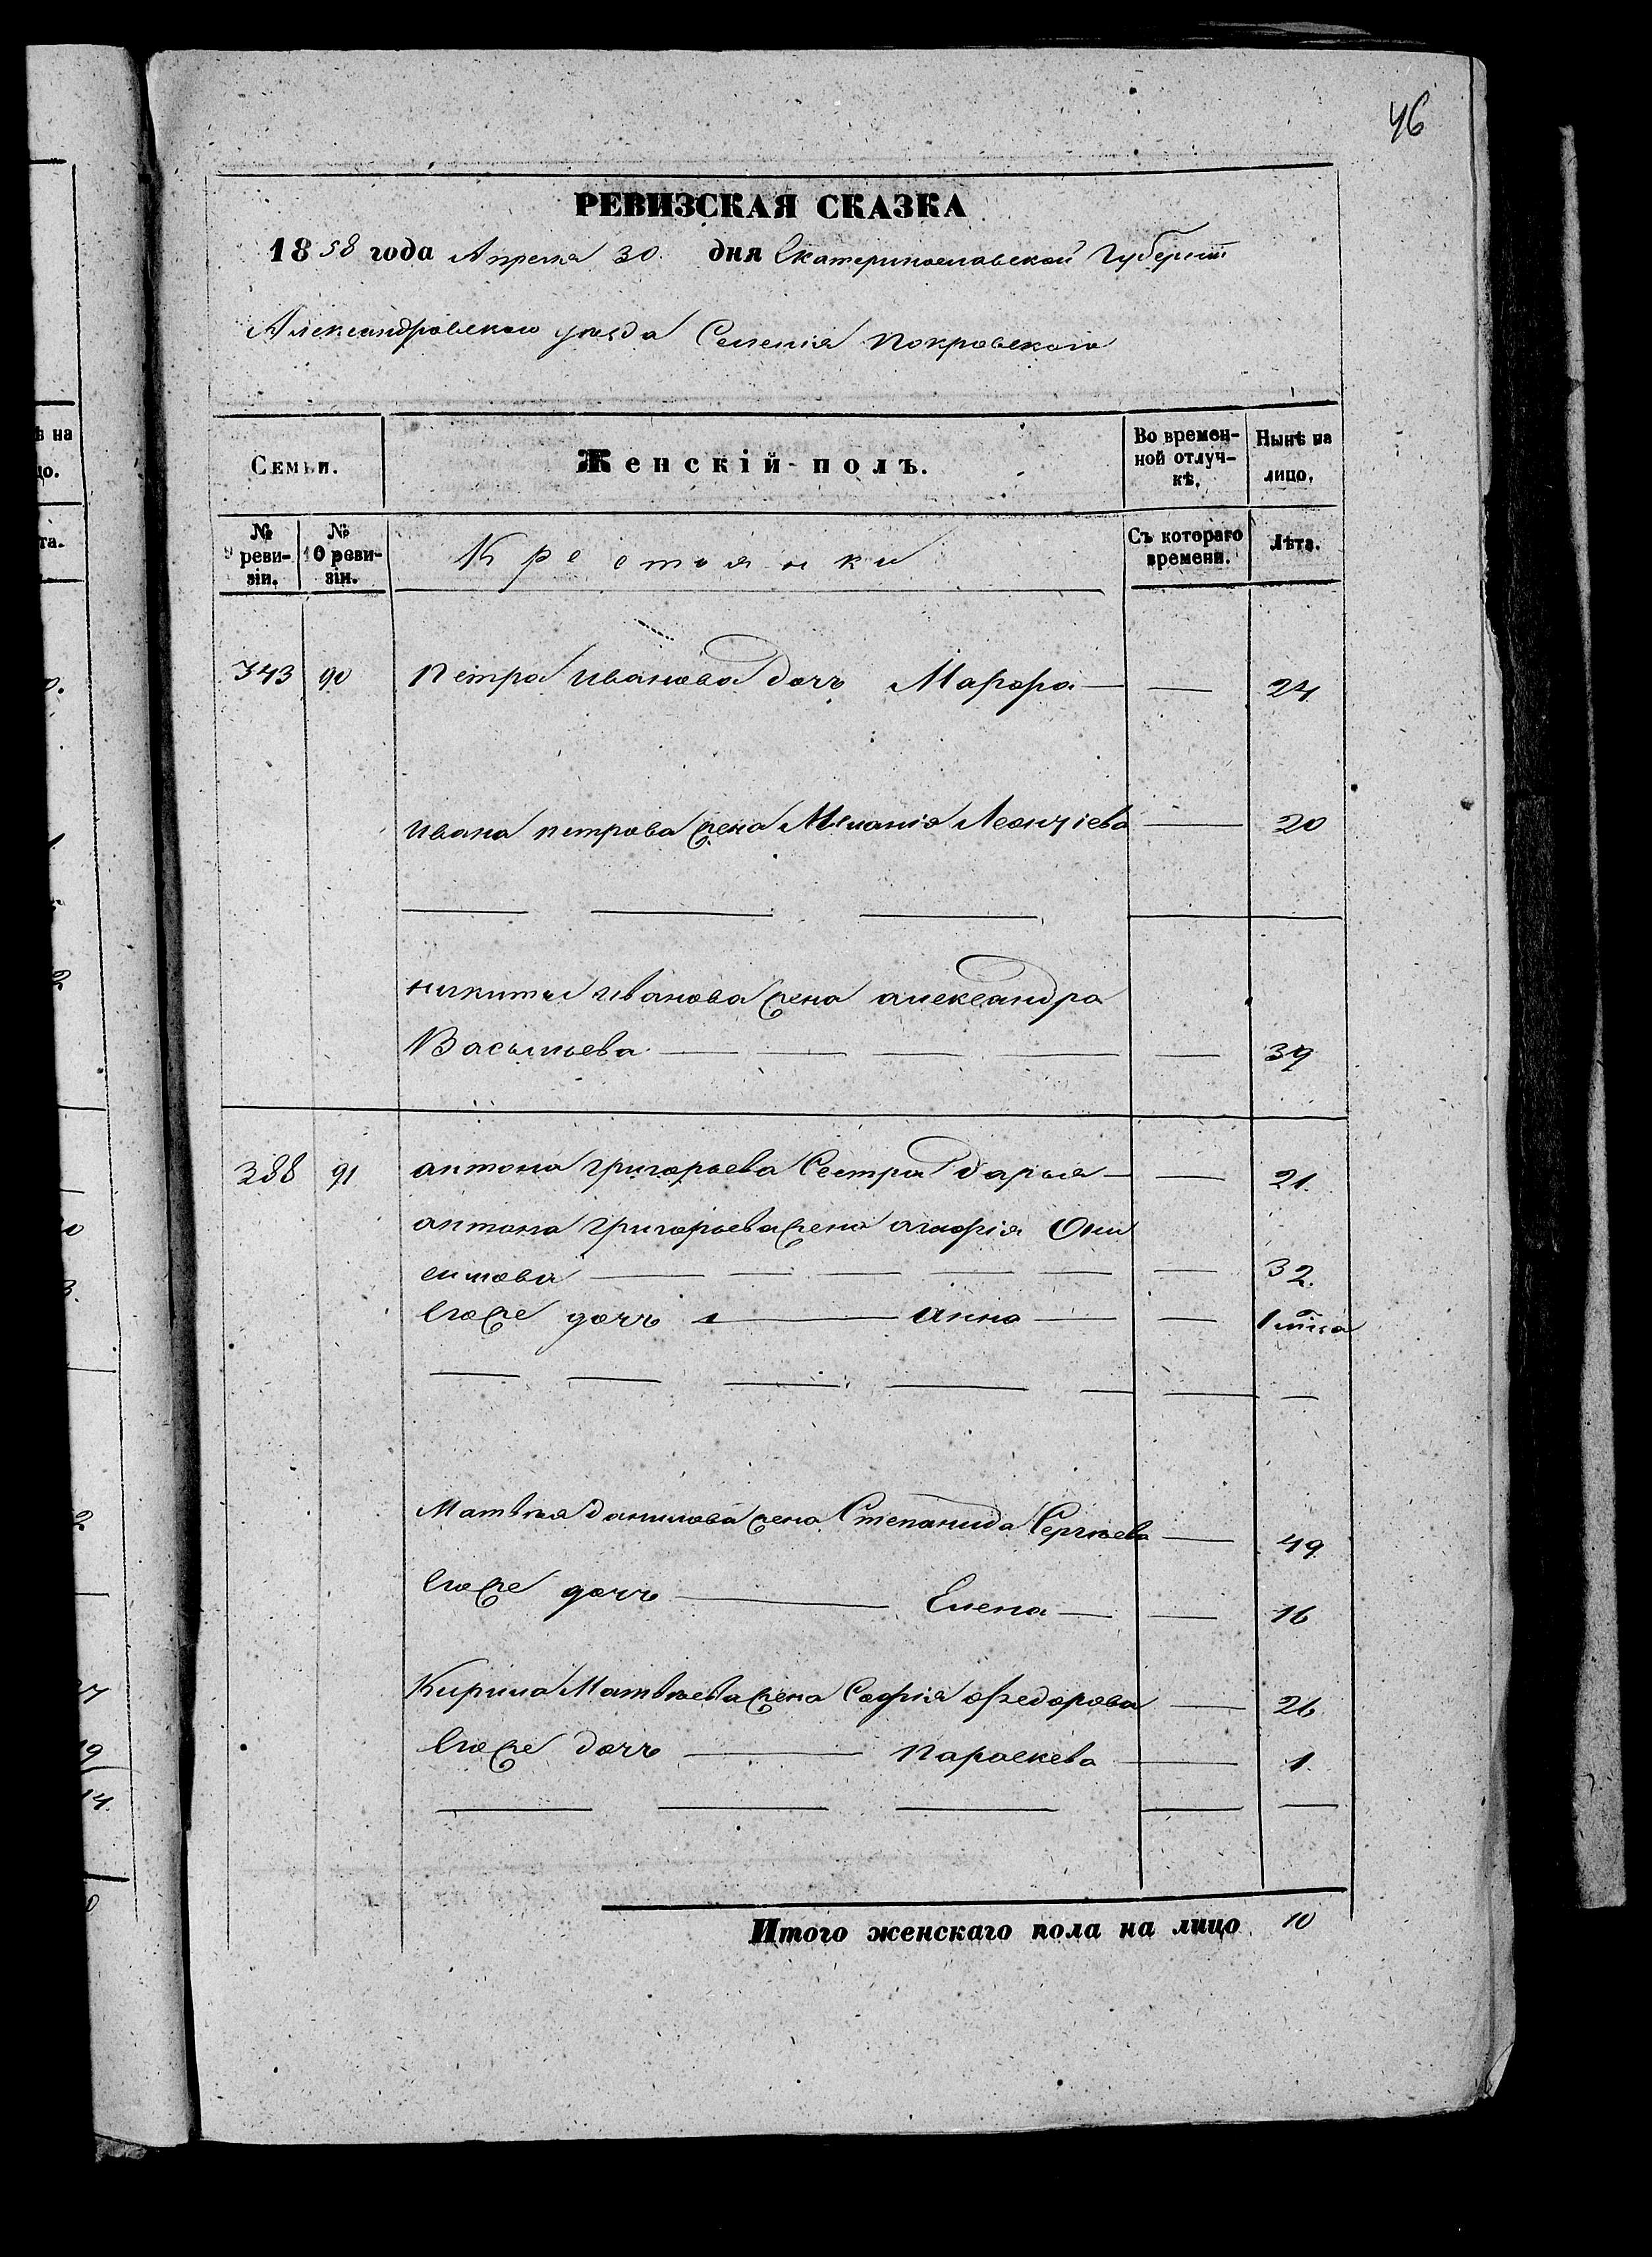 46
РЕВИЗСКАЯ СКАЗКА
1858 года Апреля 30. дня Екатеринославской Губерніи
Александровского уезда Селенія Покровского
Семьи. Женскій полъ. Во времен-ной отлуч-кѣ. Нынѣ на лицо.
№ 9 реви-зіи. № 10 реви-зіи. Крестьянки Съ котораго времени. Лѣта.
343 90 Петра Иванова дочь Марфа — — 24
Ивана Петрова жена Меланія Леонтіева — 20
Никиты Иванова жена Александра
Васильева — — — — — 39
388 91 Антона Григорьева Сестра Дарья — — 21.
Антона Григорьева жена Агафія Они
симова — — — — — — 32.
Егоже дочь — Анна — —
Матвѣя Данилова жена Степанида Сергѣева — 49
Егоже дочь — Елена — — 16
Кирила Матвѣева жена Софія Федорова — 26
Егоже дочь — Параскева — 1.
Итого женскаго пола на лицо 10
ѣ на
цо.
та.